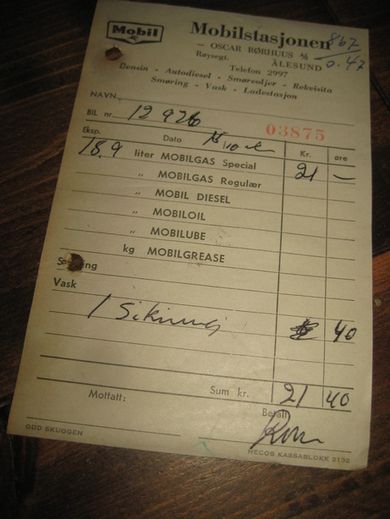 Mobil
Mobilstasjonen
867
— OSCAR RØRHUUS A/S —
0.47
Røysegt. ÅLESUND
Telefon 2997
Bensin - Autodiesel - Smøreoljer - Rekvisita
Smøring - Vask - Ladestasjon
NAVN
BIL nr 12926 03875
Eksp. Dato Kr. øre
18.9 liter MOBILGAS Special 21 —
„ MOBILGAS Regulær
„ MOBIL DIESEL
„ MOBILOIL
„ MOBILUBE
kg MOBILGREASE
Vask
1 Sikring 40
Mottatt: Sum kr. 21 40
Betalt
ODD SKUGGEN RECOS KASSABLOKK 2132